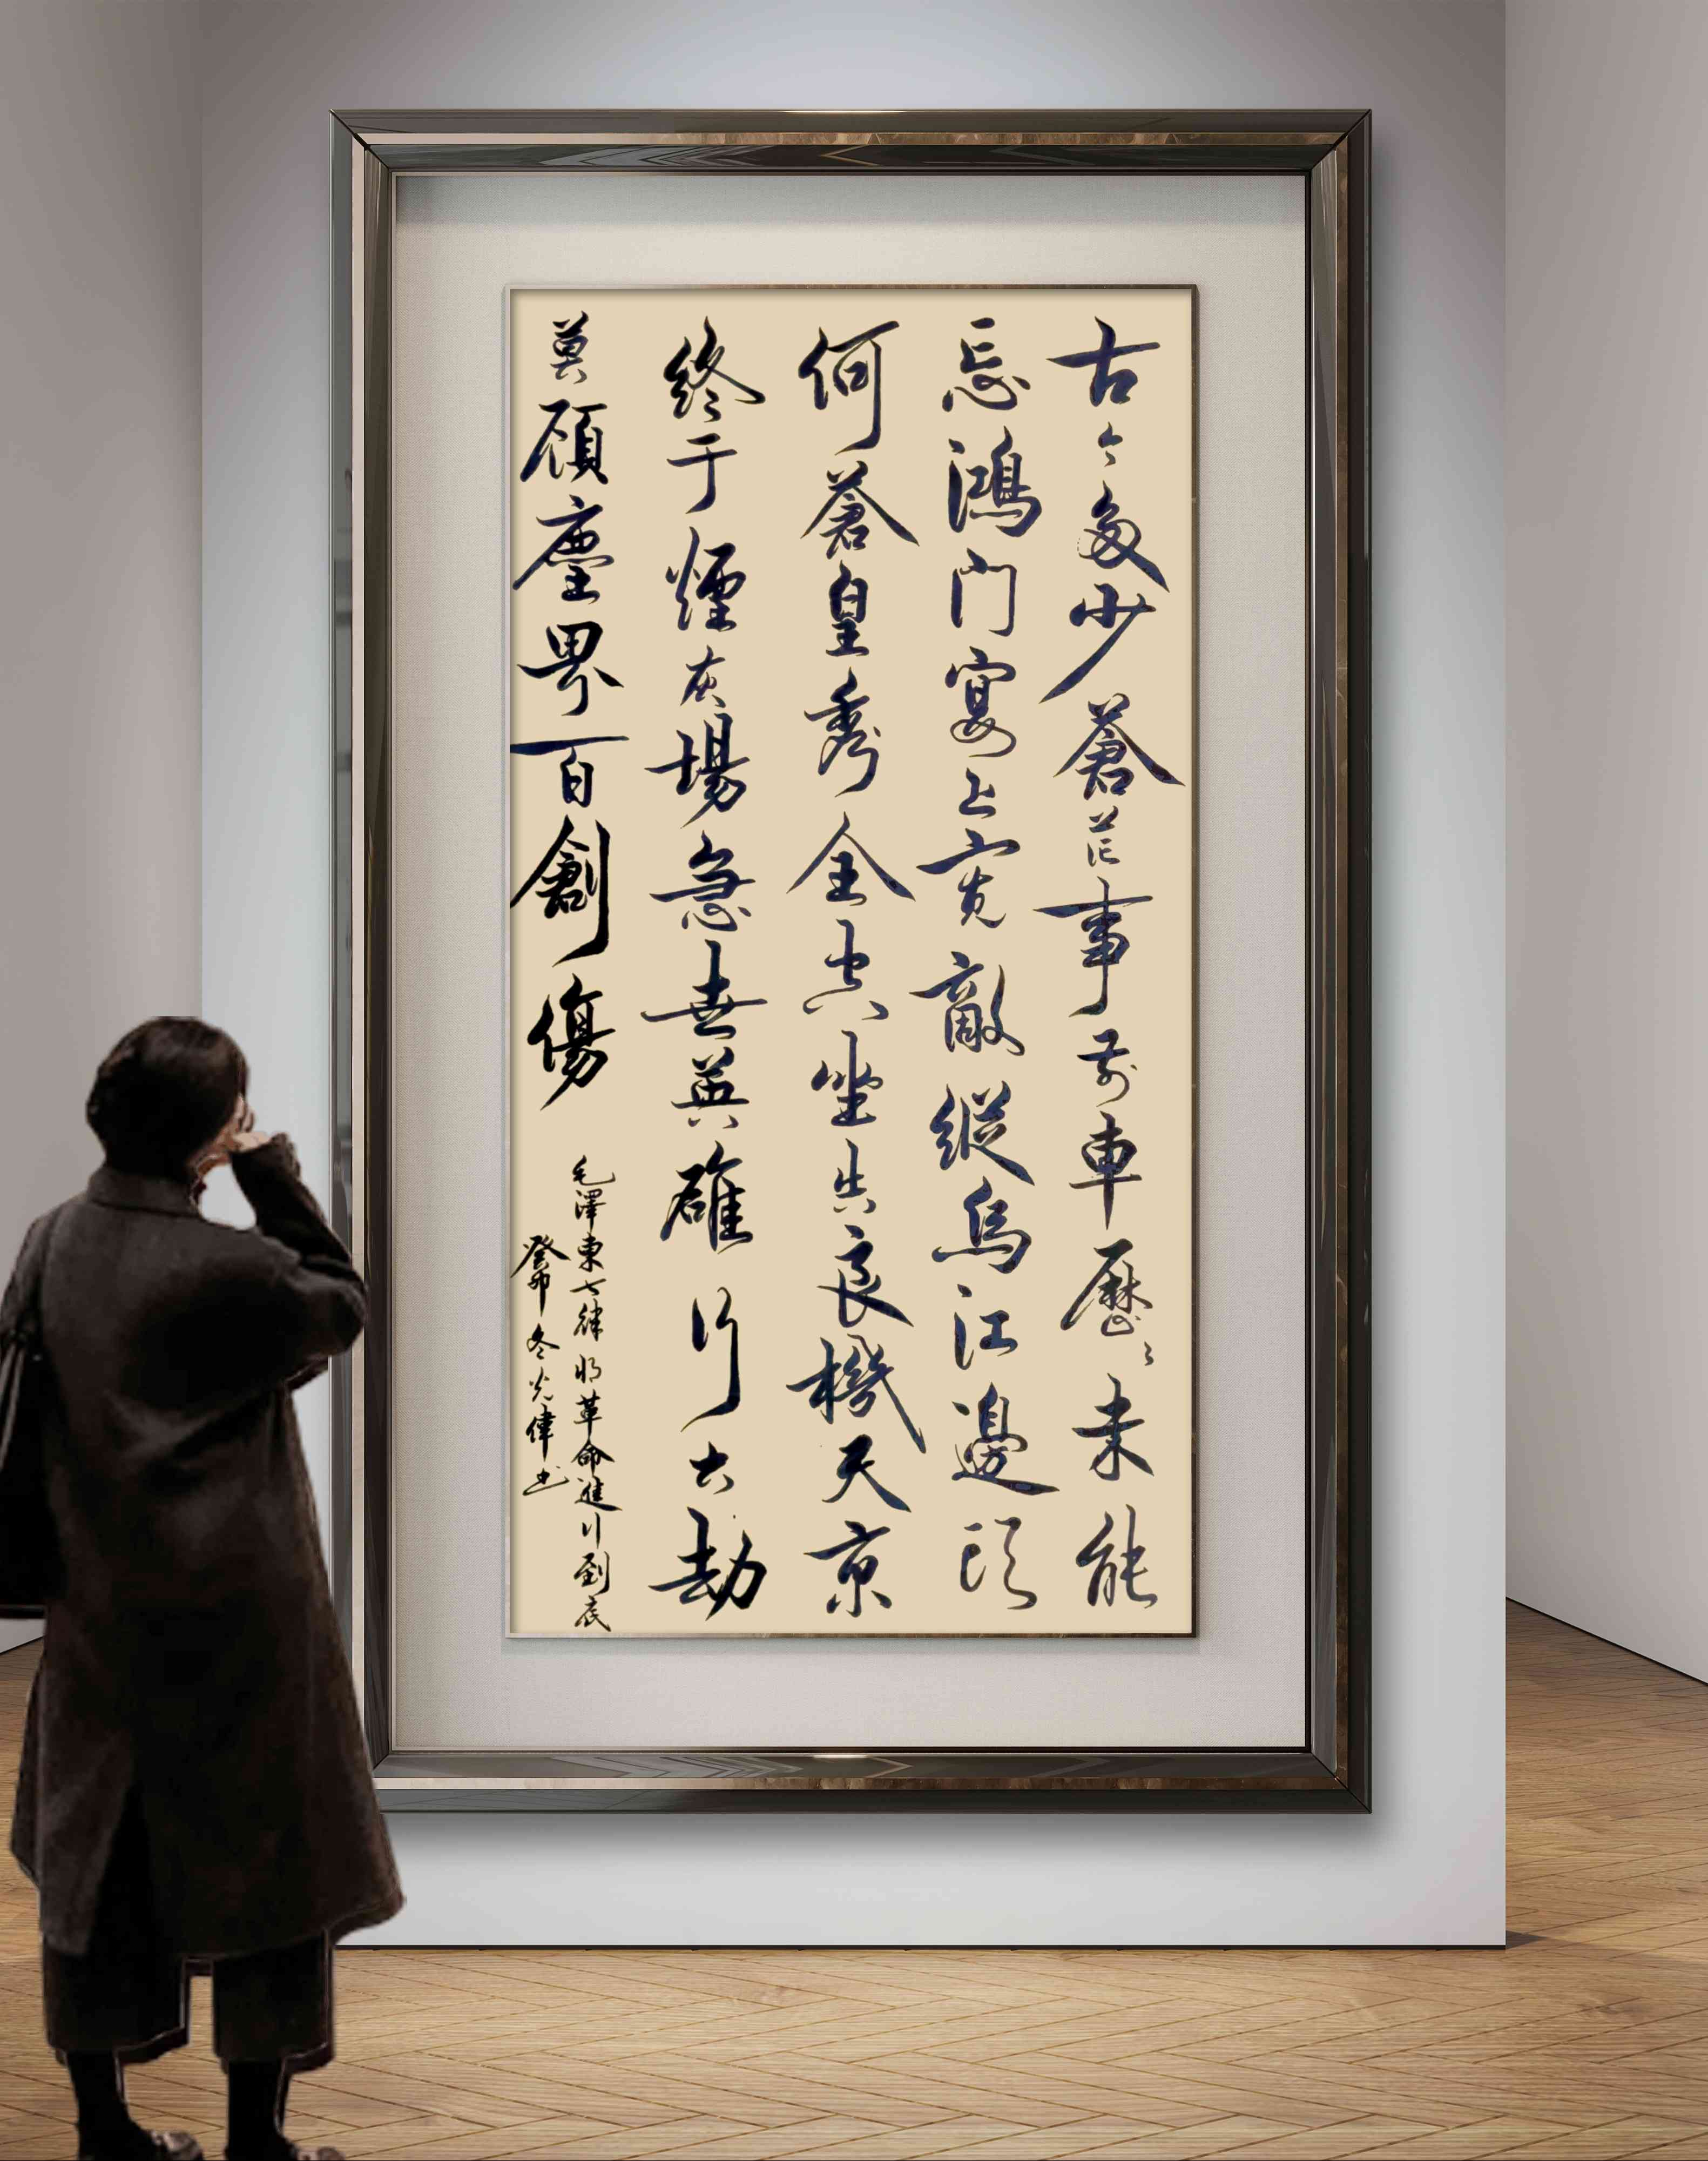 古今多少蒼茫事前車歷歷未能
忘鴻門宴上寬敵縱烏江邊頭
何蒼皇秀全空坐失良機天京
終于煙灰場急世英雄行大劫
莫顧塵界百創傷
毛澤東七律將革命進行到底
癸卯冬光偉书